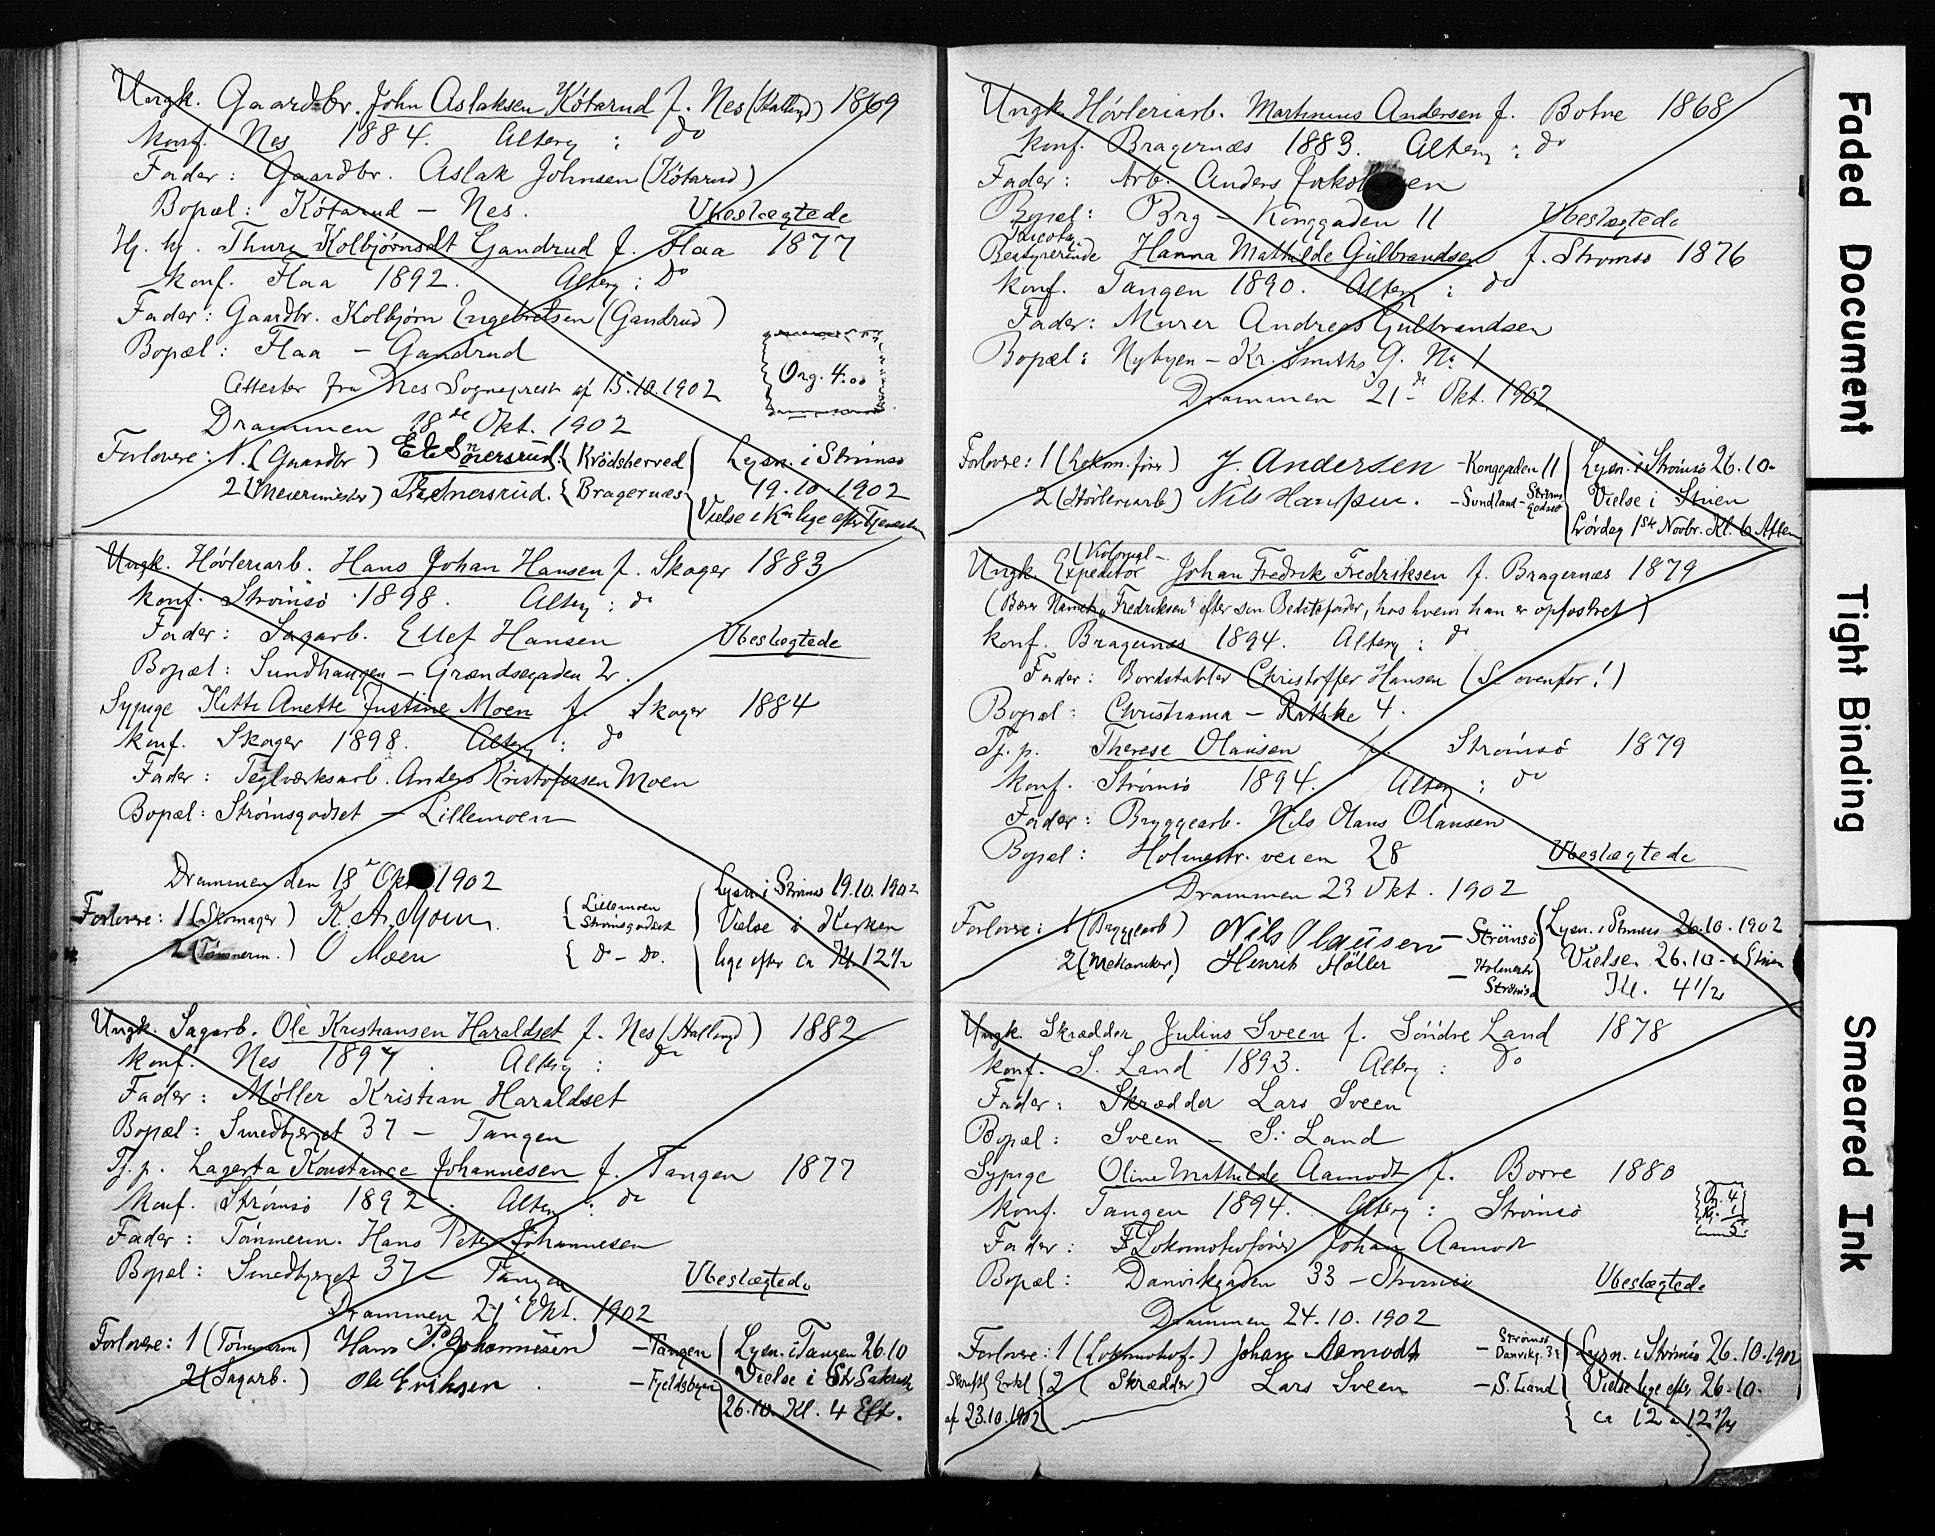 Ungk. Gaardbr. John Aslaksen Kötarud f. Nes (Hallingd) 1869
Konf. Nes 1884. Alterg : do
Fader : Gaardbr. Aslak Johnsen (Kötarud)
Bopæl : Kötarud – Nes. Ubeslægtede
Hj. hj. Thury Kolbjørnsdt Gandrud f. Flaa 1877
Konf. Flaa 1892. Alterg : do
Fader : Gaardbr. Kolbjørn Engebretsen (Gandrud)
Bopæl : Flaa – Gandrud
Attester fra Nes Sogneprest af 15.10.1902
Org. 4.00
Drammen 18de Okt. 1902
Forlovere : 1. (Gaardbr) { Krödsherred { Lysn. i Strömsö
2 (Meierimester) { Bragernæs { 19.10.1902
Vielse i Kirken lige efter Tjenesten
Ungk. Høvleriarb. Hans Johan Hansen f. Skoger 1883
Konf. Strömsö 1898. Alterg : do
Fader : Sagarb. Ellef Hansen Ubeslægtede
Bopæl : Sundhaugen – Grændsegaden 2r.
Sypige Kitti Anette Justine Moen f. Skoger 1884
Konf. Skoger 1898. Alterg : do
Fader : Teglværksarb. Anders Kristofersen Moen
Bopæl : Strømsgodset – Lillemoen
Drammen den 18 Okt 1902
Forlovere : 1 (Skomager) K. A. Moen { Lillemoen Strömsgodset { Lysn i Strömsö 19.10.1902
Vielse i Kirken
2 (Tömmerm.) O Moen { do – do. lige efter ca Kl. 12½
Ungk. Sagarb. Ole Kristiansen Haraldset f. Nes (Hallingd) 1882
Konf. Nes 1897. Alterg : do
Fader : Møller Kristian Haraldset
Bopæl : Smedbjerget 37 – Tangen
Tj. p. Lagerta Konstance Johannesen f. Tangen 1877
Konf. Strømsö 1892. Alterg : do
Fader : Tømmerm. Hans Peter Johannesen
Bopæl : Smedbjerget 37 – Tangen Ubeslægtede
Drammen 21 Okt. 1902
Forlovere : 1 (Tömmerm) Hans P. Johannesen – Tangen { Lysn. i Tangen 26.10
2 (Sagarb.) Ole Eriksen. – Fjeldsbyen Vielse i Str Sakristi
26.10 Kl. 4 Eft.
Ungk. Høvleriarb. Martinius Andersen f. Botne 1868
Konf. Bragernæs 1883. Alterg : do
Fader : Arb. Anders
Bopæl : Brg – Konggaden 11 Ubeslægtede
Bestyrerinde Hanna Mathilde Gulbrandsen f. Strömsö 1876
Konf. Tangen 1890. Alterg : do
Fader : Murer Andreas Gulbrandsen
Bopæl : Nybyen – Kr. Smiths G. No 1
Drammen 21 Okt. 1902
Forlovere : 1 (Lokom.fører) J. Andersen – Konggaden 11 { Lysn. i Strömsö 26.10.
2 (Høvleriarb) Nils Hansen. – Sundland – Strömsgodset Vielse i Stuen
Lørdag 1ste Novbr. Kl. 6 Aften
Ungk. Expeditör Johan Fredrik Fredriksen f. Bragernæs 1879
(Bærer Navnet „Fredriksen" efter sin Bedstefader, hos hvem han er opfostret)
Konf. Bragernæs 1894. Alterg : do
Fader : Bordstabler Christoffer Hansen (Se ovenfor!)
Bopæl : Christiania – Rathke 4.
Tj. p. Therese Olausen f. Strömsö 1879
Konf. Strömsö 1894. Alterg : do
Fader : Bryggearb. Nils Olaus Olausen
Bopæl : Holmestr. veien 28 Ubeslægtede
Drammen 23 Okt. 1902
Forlovere : 1 (Bryggearb) Nils Olausen – Strömsö { Lysn. i Strömsö 26.10.1902
2 (Mekaniker) Henrik Møller – Holmestr Strömsö Vielse 26.10 i Stuen
Kl. 4½
Ungk. Skrædder Julius Sveen f. Söndre Land 1878
Konf. S. Land 1893. Alterg : do
Fader : Skrædder Lars Sveen
Bopæl : Sveen – S. Land
Sypige Oline Mathilde Aamodt f. Borre 1880
Konf. Tangen 1894. Alterg : Strömsö
Fader : Lokomotivfører Johan Aamodt
Bopæl : Danvikgaden 33 – Strömsö Ubeslægtede
Drammen 24.10.1902
Forlovere : 1 (Lokomotivf.) Johan Aamodt – Strömsö Danvikg. 33 { Lysn. i Strömsö 26.10.1902
Skriftl Erkl af 23.10.1902 { 2 (Skrædder) Lars Sveen – S. Land Vielse lige efter 26.10.
ca 12 a 12½
Faded Document
Tight Binding
Smeared Ink